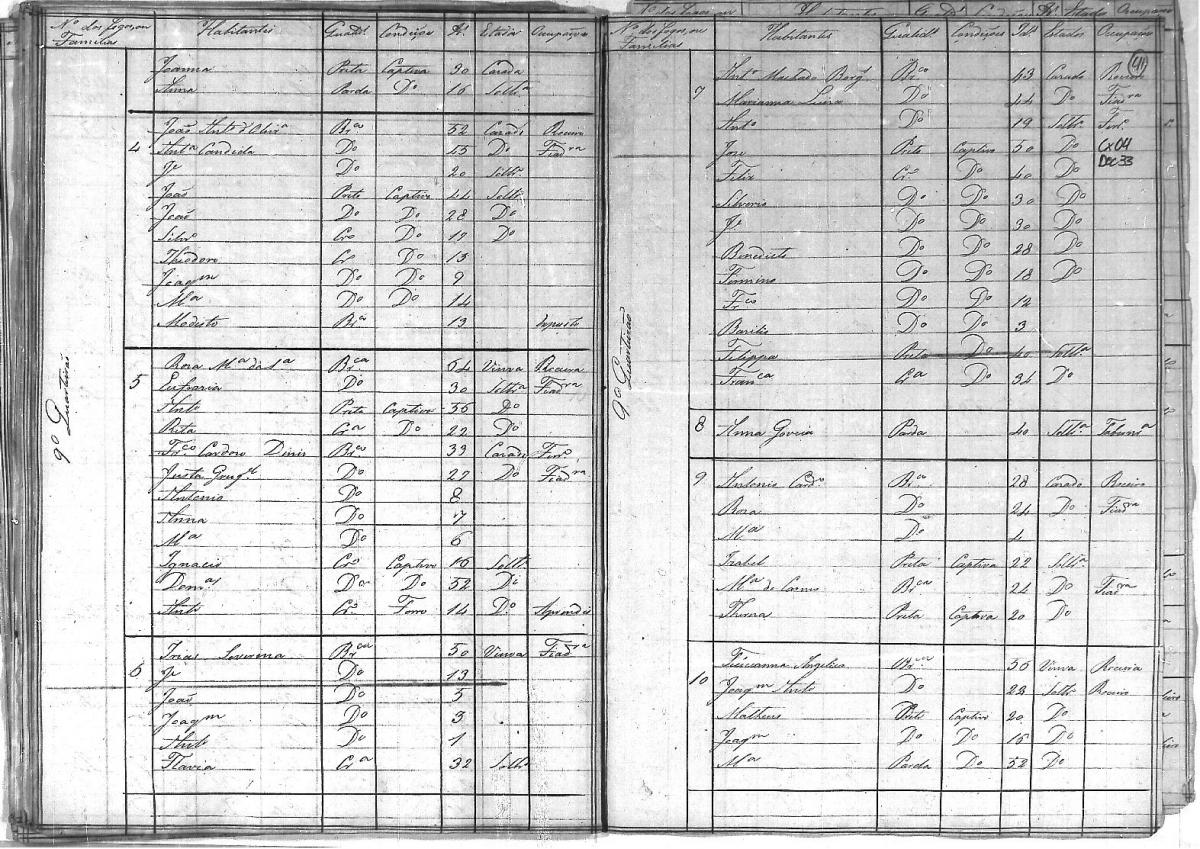 Nº dos Fogos, ou Familias Habitantes Qualid.e Condição Id.e Estado Ocupação
Joanna Preta Captiva 30 Casada
Anna Parda Dº 16 Solt.ª
4 João Antº d'Olivrª Brº 52 Casado Roceiro
Antª Candida Dº 45 Dº Fiadra
Je Dº 20 Soltº
João Preto Captivo 44 Soltº
João Dº Dº 28 Dº
Silvº Crº Dº 19 Dº
Theodoro Crº Dº 13
Joaqm Dº Dº 9
Mª Dº Dº 14
Modesto Brº 13 Exposto
9º Quarteirão
5 Rosa Mª Brca 64 Viuva Roceira
Eufrazia Dº 30 Soltª Fiadra
Antº Preto Captivo 56 Dº
Rita Crª Dº 22 Dº
Frco Cardoso Diniz Brco 33 Casado
Justa Dº 27 Dº Fiadra
Antonio Dº 8
Anna Dº 7
Mª Dº 6
Ignacio Crº Captivo 16 Soltº
Domas Dª Dº 52 Dº
Antº Crº Forro 14 Dº Aprendis
6 Severina Brca 50 Viuva Fiadra
Je Dº 13
João Dº 5
Joaqm Dº 3
Antº Dº 1
Flavia Crª 32 Solt.ª
Nº dos Fogos, ou Familias Habitantes Qualid.e Condições Id.e Estados Occupação
41
7 Antº Machado Borg.s Brco 43 Casado Roceiro
Marianna Luiza Dº 44 Dº Fiadra
Antº Dº 19 Soltº
Jose Preto Captivo 50 Dº
Cx04
Doc33
Felix Crº Dº 40 Dº
Silverio Dº Dº 30 Dº
Je Dº Dº 30 Dº
Benedicto Dº Dº 28 Dº
Firmino Dº Dº 18 Dº
Frco Dº Dº 12
Bazilio Dº Dº 3
Filippa Preta Dº 40 Soltª
Franca Crª Dº 34 Dº
9º Quarteirão
8 Anna Gouvia Parda 40 Soltª
9 Antonio Cardº Brco 28 Casado Roceiro
Rosa Dº 24 Dº Fiadra
Mª Dº 4
Izabel Preta Captiva 22 Soltª
Mª do Carmo Brca 24 Dº Fiadra
Preta Captiva 20 Dº
10 Angelica Brca 56 Viuva Roceira
Joaqm Antº Dº 23 Soltº Roceiro
Matheus Preto Captivo 20 Dº
Joaqm Dº Dº 16 Dº
Mª Parda Dº 52 Dº